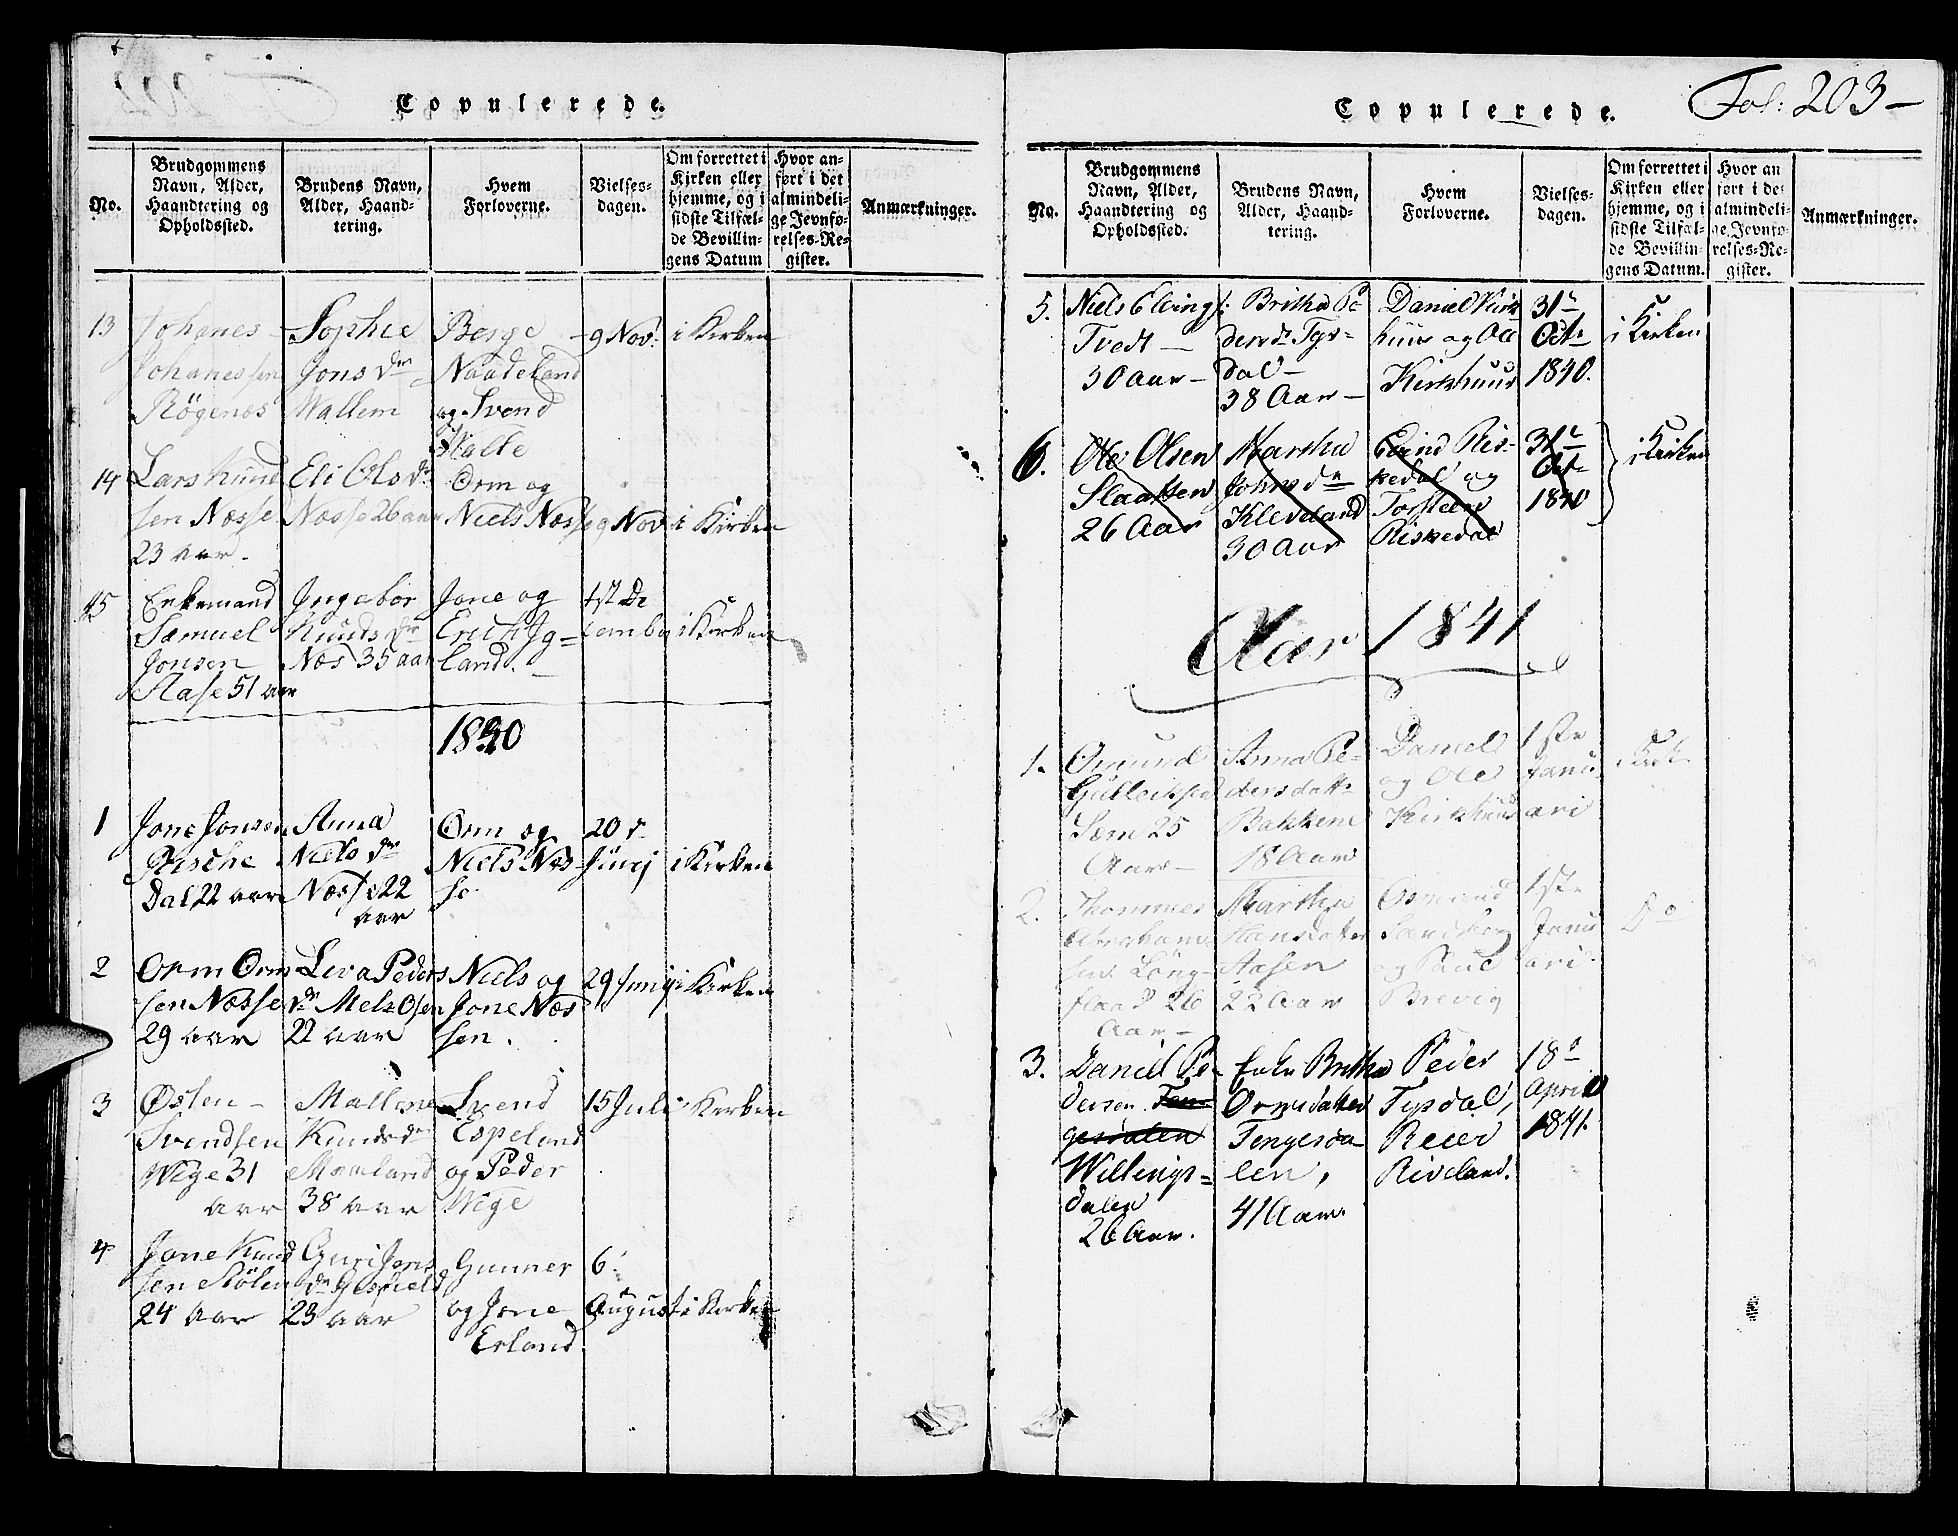 Copulerede.
No.
Brudgommens Navn, Alder, Haandtering og Opholdssted.
Brudens Navn, Alder, Haandtering.
Hvem Forloverne.
Vielsesdagen.
Om forrettet i Kirken eller hjemme, og i sidste Tilfælde Bevillingens Datum
Hvor anført i det almindelige Jevnførelses-Register.
Anmærkninger.
13
Johanes
Johanessen
Røgenes
Sophie
Jons dr
Wallem
Berge
Naadeland
og Svend
Halte
9 Nov.
i Kirken
14
Lars Knud
sen Næsse
23 aar.
Eli Ols dr
Næsse 26 aar
Orm og
Niels Næsse
9 Nov
i Kirken
15
Enkemand
Samuel
Jonsen
Aase 51 aar
Ingebor
Knuds dr
Næs 35 aar
Jone og
Erich Ig=
land.
1st De
cember
i Kirken
1840
1
Jone Jonsen
Rische
Dal 22 aar
Anna
Niels dr
Næsse 22
aar
Orm og
Niels Næs-
se
20 d
Junij
i Kirken
2
Orm Orm
sen Næsse
29 aar
Leva Peders
dr Mels Osen
22 aar
Niels og
Jone Næs
sen.
29 Junij
i Kirken
3
Østen
Svendsen
Wege 31
aar
Mallene
Knuds dr
Moeland
38 aar
Svend
Espeland
og Peder
Wege
15 Juli
i Kirken
4
Jone Knud
sen Stølen
24 aar
Guri Jons
dr Gesfield
23 aar
Gunner
og Jone
Erland
6.
August
i Kirken
Copulerede.
Fol: 203-
No.
Brudgommens Navn, Alder, Haandtering og Opholdssted.
Brudens Navn, Alder, Haandtering.
Hvem Forloverne.
Vielsesdagen.
Om forrettet i Kirken eller hjemme, og i sidste Tilfælde Bevillingens Datum.
Hvor anført i det almindelige Jevnførelses-Register.
Anmærkninger.
5.
Niels Elling s:
Tvedt
30 Aar
Britha Pe
dersd. Tys-
dal
38 Aar
Daniel Kirk
huus og Ole
Kirkhuus
31
Oct.
1840.
i Kirken
6.
Ole Olsen
Slaatten
26 Aar
Martha
Johns dr
Kleveland
30 Aar
Eivind Ris-
kedal og
Torsteen
Riskedal
31
Oct.
1840
i Kirken
Aar 1841
1.
Osmund
Gulleiksen
Sem 25
Aar
Anna Pe-
dersdatt.
Bakken
18 Aar
Daniel
og Ole
Kirkhuus
1ste
Janu
ari
Kirk.
2.
Thommes
Abrahams
sen Løng-
flaad 26
Aar
Martha
Hansdatter
Aasen
22 Aar
Osmund
Sandberg
og Paul
Brevig
1ste
Janu
ari
Do
3.
Daniel Pe-
dersen Ten-
gesdalen
Willings=
dalen
26 Aar.
Enke Britha
Ormsdatter
Tengesda
len,
41 Aar
Peder
Tysdal,
Reier
Riveland.
18
April
1841.